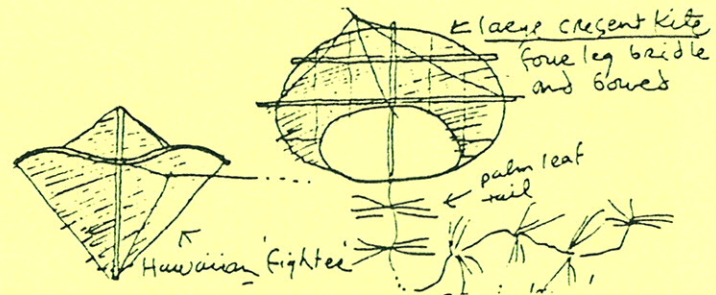 large cresent kite
four leg bridle
and bowed
palm leaf
tail
Hawaiian 'fighter'